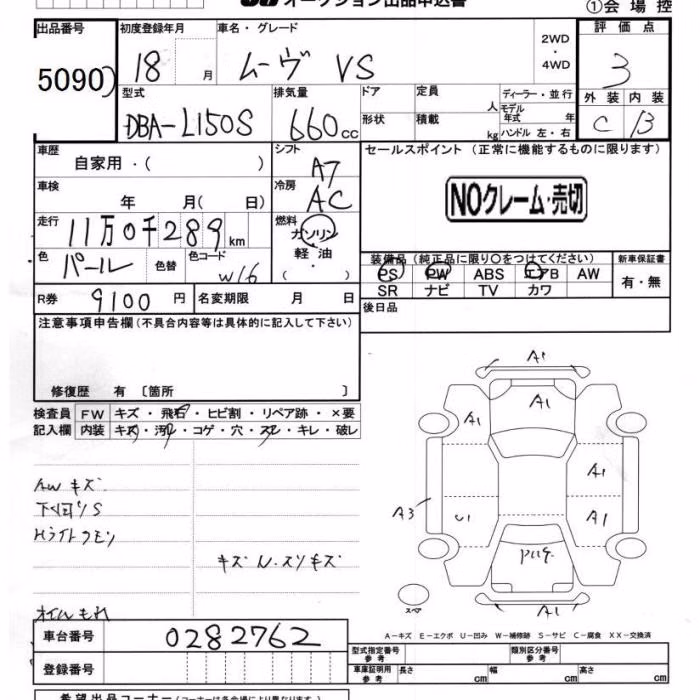 オークション出品申込書
①会場控
出品番号 初度登録年月 車名・グレード 2WD・4WD 評価点
5090 18 月 ムーヴ VS 3
型式 排気量 ドア 定員 人 ディーラー・並行 外装 内装
DBA-L150S 660cc 形状 積載 kg モデル年式 年 C B
ハンドル 左・右
車歴 自家用・( ) シフト A7 セールスポイント (正常に機能するものに限ります)
車検 年 月( 日) 冷房 AC NOクレーム・売切
走行 11万0千289km 燃料 ガソリン
軽油
( ・ )
色 パール 色替 色コード W16 装備品(純正品に限り○をつけてください) 新車保証書
PS PW ABS エアB AW 有・無
R券 9100円 名変期限 月 日 SR ナビ TV カワ
注意事項申告欄(不具合内容等は具体的に記入して下さい) 後日品
修復歴 有 〔箇所 〕
検査員 FW キズ・飛石・ヒビ割・リペア跡・×要
記入欄 内装 キズ・汚れ・コゲ・穴・スレ・キレ・破レ
A1
A1
A1
A1
AWキズ A3 U1 A1
下回りS
Hライトクモリ
キズ N.スリキズ
スペア A1
オイルもれ
A-キズ E-エクボ U-凹み W-補修跡 S-サビ C-腐食 XX-交換済
車台番号 0282762 型式指定番号 参考 類別区分番号 参考
登録番号 車庫証明用 参考 長さ cm 幅 cm 高さ cm
希望出品コーナー(コーナーは各会場により異なります)